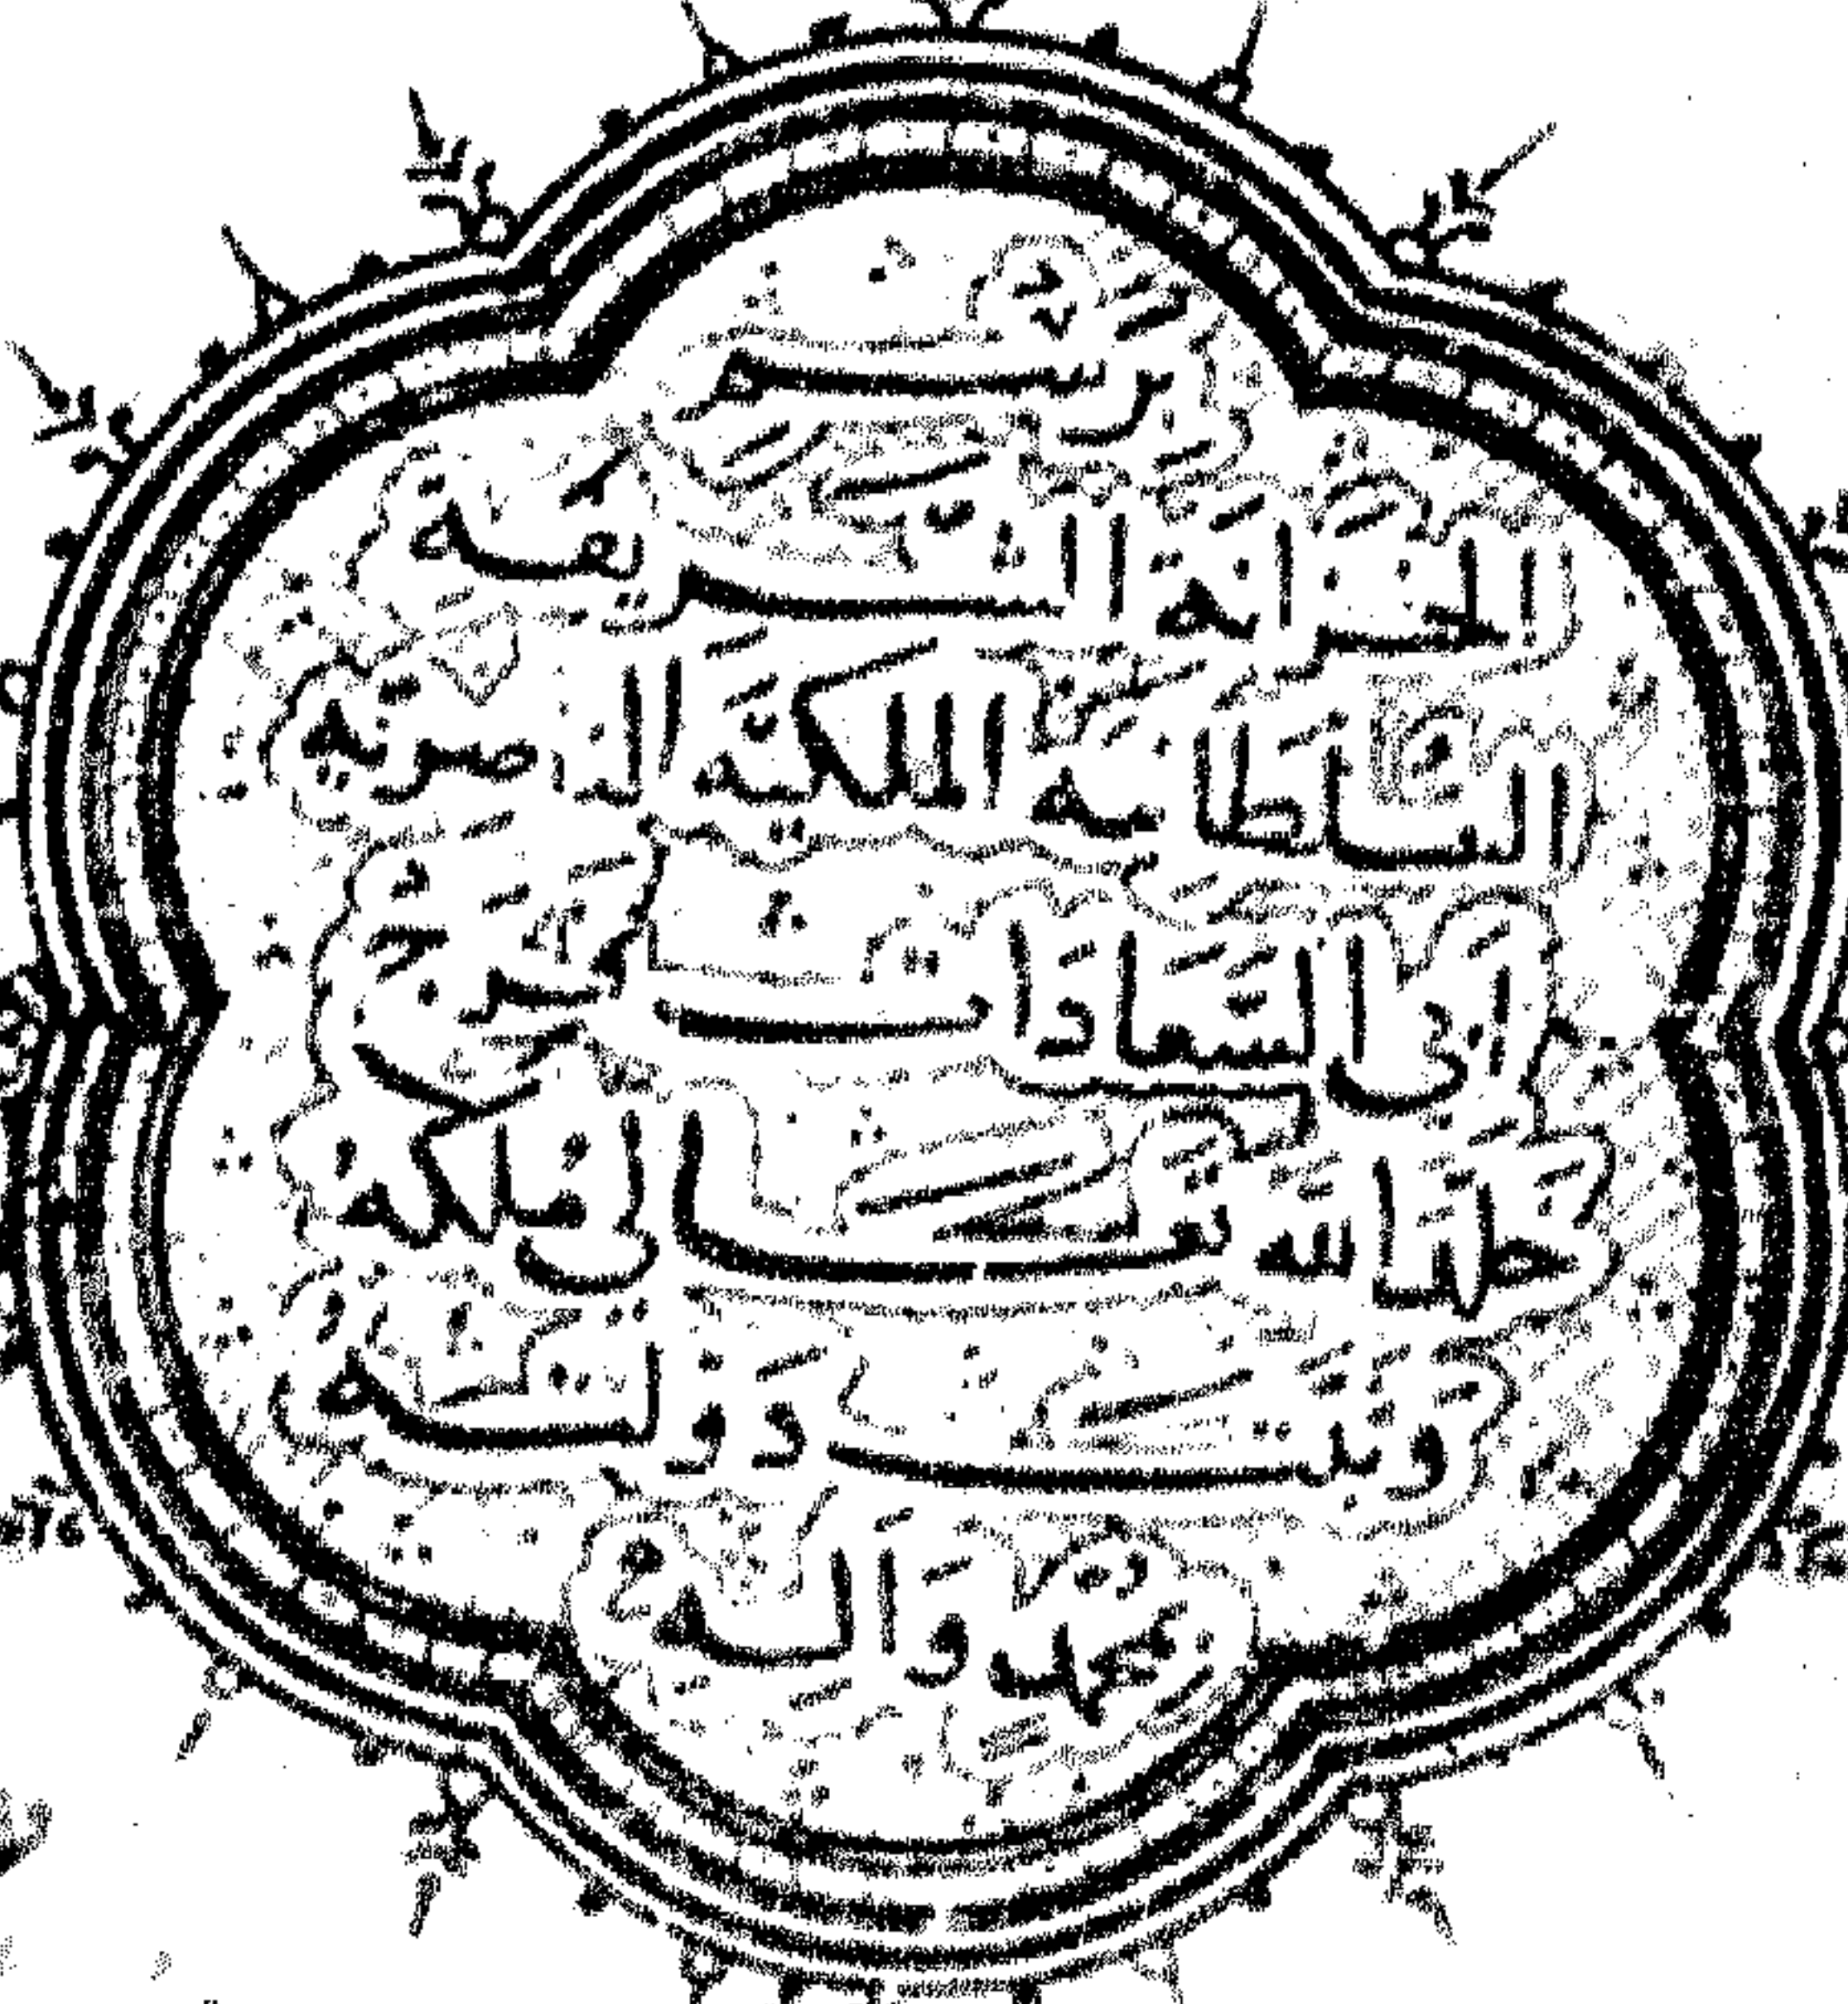 برسم
الخزانة الشريفة
السلطانية الملكية الناصرية
ابى السعادات فرج
خلد الله تعالى ملكه
وثبت دولته
بمحمد واله